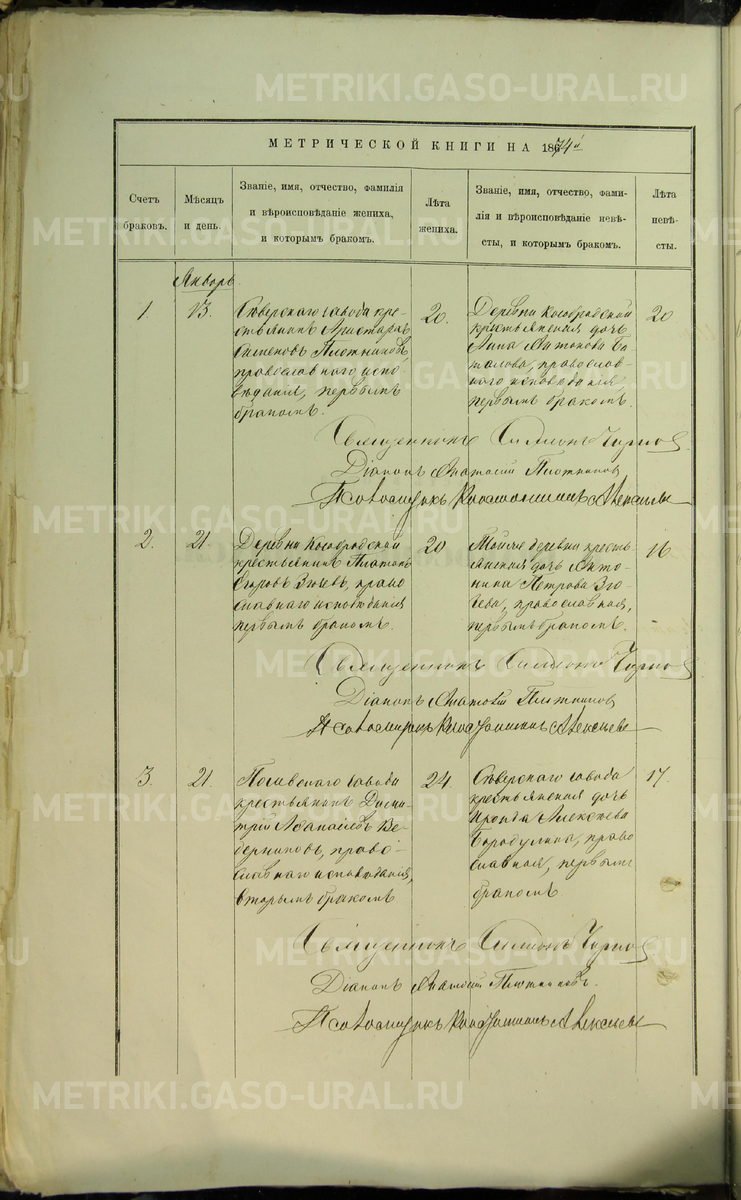 МЕТРИЧЕСКОЙ КНИГИ НА 1874й
Счетъ браковъ.
Мѣсяцъ и день.
Званіе, имя, отчество, фамилія
и вѣроисповѣданіе жениха,
и которымъ бракомъ.
Лѣта жениха.
Званіе, имя, отчество, фами-
лія и вѣроисповѣданіе невѣ-
сты, и которымъ бракомъ.
Лѣта невѣ-
сты.
Январь.
1
13.
Сѣверскаго завода кре-
стьянинъ Аристархъ
Плотниковъ,
православнаго испо-
вѣданія, первымъ
бракомъ.
20.
Деревни Кособродской
крестьянская дочь
Анна Антонова Ба-
талова, православ-
наго исповѣданія,
первымъ бракомъ.
20
Священникъ Симеонъ
Діаконъ Анатолій Плотниковъ
Псаломщикъ Константинъ Алексѣевъ
2.
21.
Деревни Кособродской
крестьянинъ Платонъ
Егоровъ Зюевъ, право
славнаго исповѣданія
первымъ бракомъ.
20
Той же деревни кресть
янская дочь Анто-
нина Петрова Зю-
ева, православная,
первымъ бракомъ.
16
Священникъ Симеонъ
Діаконъ Анатолій Плотниковъ
Псаломщикъ Константинъ Алексѣевъ
3.
21.
завода
крестьянинъ Дими-
трій Аѳанасіевъ Ве-
дерниковъ, право-
славнаго исповѣданія,
вторымъ бракомъ
24.
Сѣверскаго завода
крестьянская дочь
Алексѣева
Бородулина, право
славная, первымъ
бракомъ
17.
Священникъ Симеонъ
Діаконъ Анатолій Плотниковъ.
Псаломщикъ Константинъ Алексѣевъ
METRIKI.GASO-URAL.RU